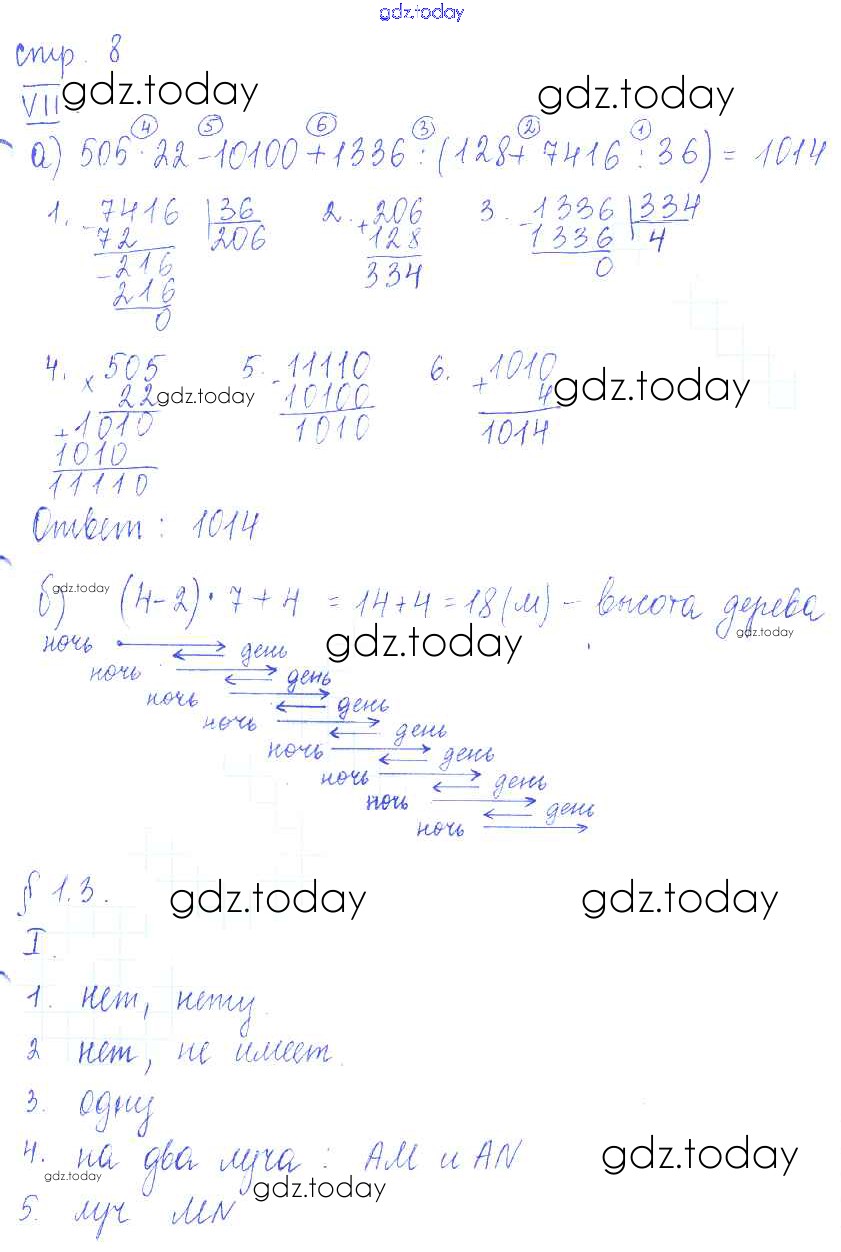 gdz.today
стр. 8
VII gdz.today gdz.today
④ ⑤ ⑥ ③ ② ①
а) 505 · 22 - 10100 + 1336 : (128 + 7416 : 36) = 1014
1. - 7416 | 36 2. + 206 3. - 1336 | 334
72 206 128 1336 4
- 216 334 0
216
0
4. × 505 5. - 11110 6. + 1010
22 gdz.today 10100 4 gdz.today
+ 1010 1010 1014
1010
11110
Ответ: 1014
б) gdz.today (4-2) · 7 + 4 = 14 + 4 = 18 (м) - высота дерева
gdz.today
ночь день gdz.today
ночь день
ночь день
ночь день
ночь день
ночь день
ночь день
ночь
§ 1.3. gdz.today gdz.today
I.
1. нет, нету.
2 нет, не имеет.
3. одну
4. на два луча: AM и AN gdz.today
gdz.today gdz.today
5. луч MN